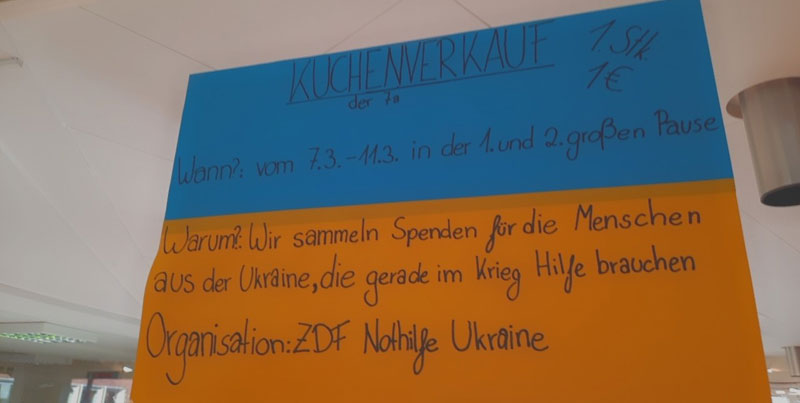 KUCHENVERKAUF
der 7a
1 Stk
1€
Wann?: vom 7.3.-11.3. in der 1. und 2. großen Pause
Warum?: Wir sammeln Spenden für die Menschen
aus der Ukraine, die gerade im Krieg Hilfe brauchen
Organisation: ZDF Nothilfe Ukraine